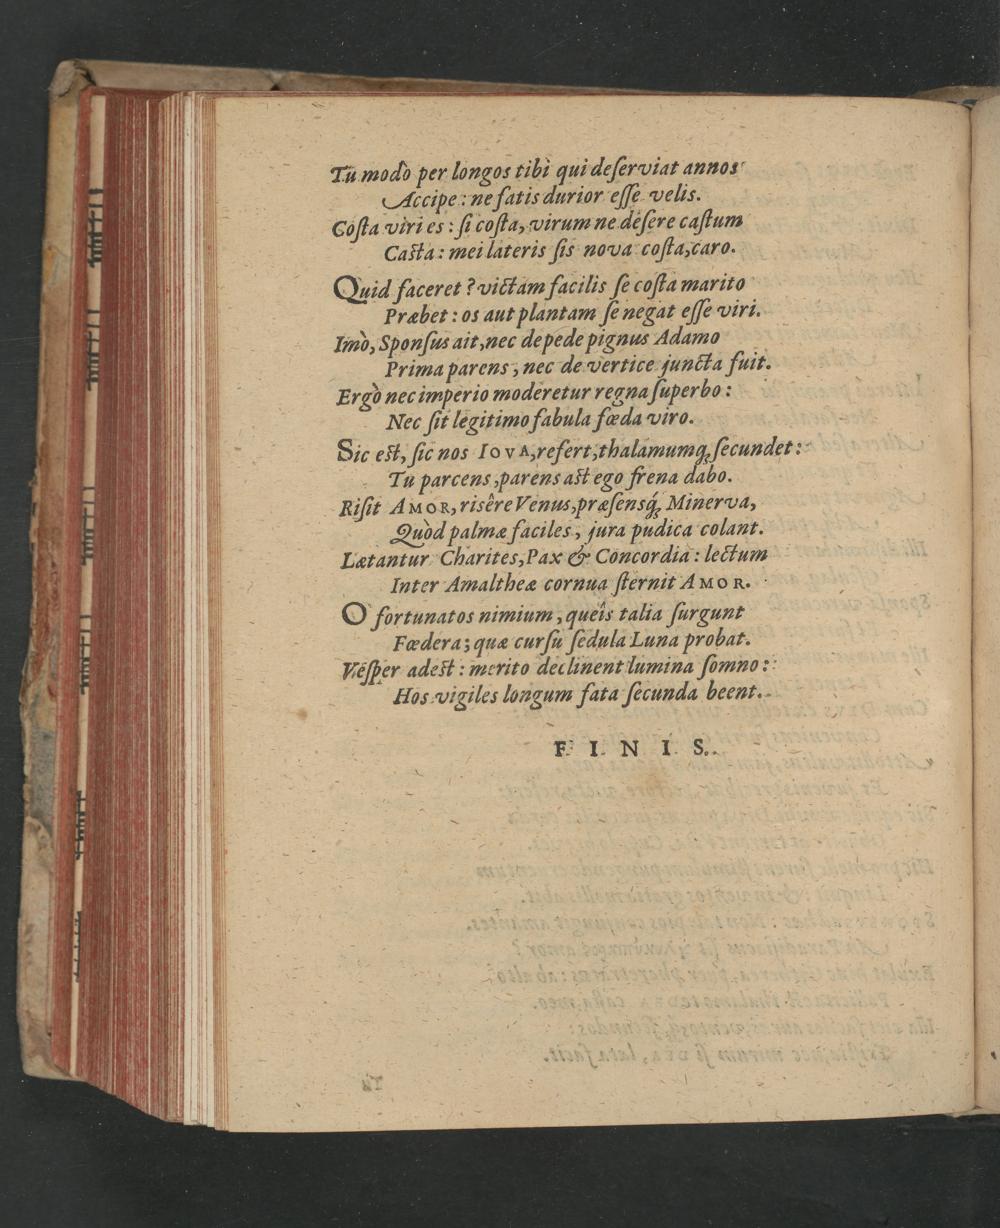 Tu modò per longos tibi qui deſerviat annos
Accipe : ne fatis durior eſſe velis.
Coſta viri es : ſi coſta, virum ne deſere caſtum
Caſta : mei lateris ſis nova coſta, caro.
Quid faceret ? victam facilis ſe coſta marito
Præbet : os aut plantam ſe negat eſſe viri.
Imò, Sponſus ait, nec de pede pignus Adamo
Prima parens, nec de vertice juncta fuit.
Ergò nec imperio moderetur regna ſuperbo :
Nec ſit legitimo fabula fœda viro.
Sic eſt, ſic nos IOVA, refert, thalamumq́; ſecundet :
Tu parcens, parens aſt ego frena dabo.
Riſit AMOR, risêre Venus, præſensq́; Minerva,
Quòd palmæ faciles, jura pudica colant.
Lætantur Charites, Pax & Concordia : lectum
Inter Amaltheæ cornua ſternit AMOR.
O fortunatos nimium, queîs talia ſurgunt
Fœdera; quæ curſu ſedula Luna probat.
Veſper adeſt : merito declinent lumina ſomno :
Hos vigiles longum fata ſecunda beent.
F I N I S.